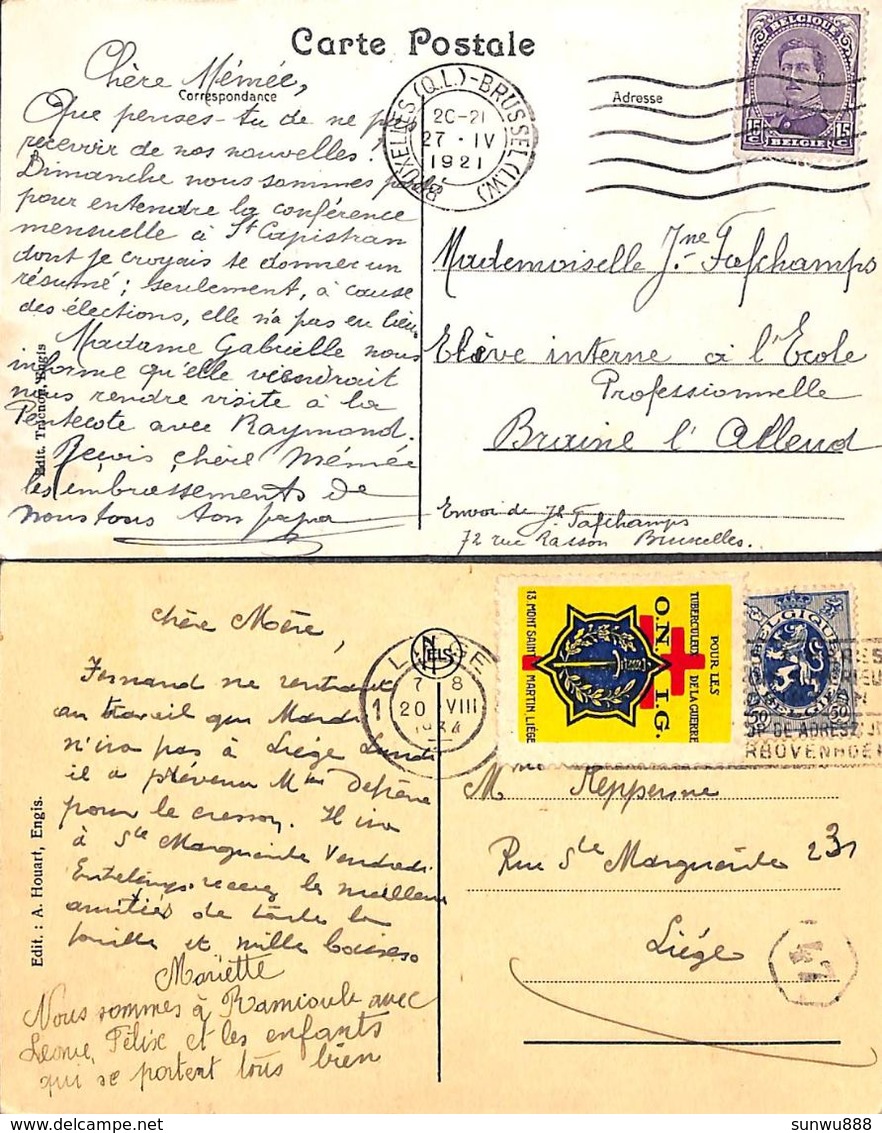 Carte Postale
Correspondance
Adresse
BELGIQUE
15 C 15 C
BELGIE
BRUXELLES (Q.L.) - BRUSSEL (L.W.)
20-21
27 · IV
1921
Chère Mémée,
Que penses-tu de ne pas
recevoir de nos nouvelles !
Dimanche nous sommes
pour entendre la conférence
mensuelle à St Capistran
dont je croyais te donner un
résumé ; seulement, à cause
des élections, elle n'a pas eu lieu.
Madame Gabrielle nous
informe qu'elle viendrait
nous rendre visite à la
Pentecote avec Raymond.
Reçois chère Mémée
les embrassements de
nous tous ton papa
Edit. Engis
Mademoiselle Jne Fafchamps
Elève interne à l'Ecole
Professionnelle
Braine l'Alleud
Envoi de Fafchamps
72 rue Rasson Bruxelles.
Chère Mère,
Fernand ne rentrant
au travail que Mardi
n'ira pas à Liége Lundi
il a prévenu Mme
pour le cresson. Il ira
à Ste Marguerite Vendredi
recevez les meilleures
amitiés de toute la
famille et mille baisers
Mariette
Nous sommes à Ramioule avec
Leonie, Félix et les enfants
qui se portent tous bien
Edit. : A. Houart, Engis.
NELS
1
7 8
20 VIII
POUR LES
TUBERCULEUX DE LA GUERRE
O.N.I.G.
13 MONT SAINT MARTIN LIÉGE
BELGIQUE
50 BELGIE 50
OP DE ADRESZIJ
RBOVENHOEK
Mme Keppenne
Rue Ste Marguerite 231
Liége
sunwu888